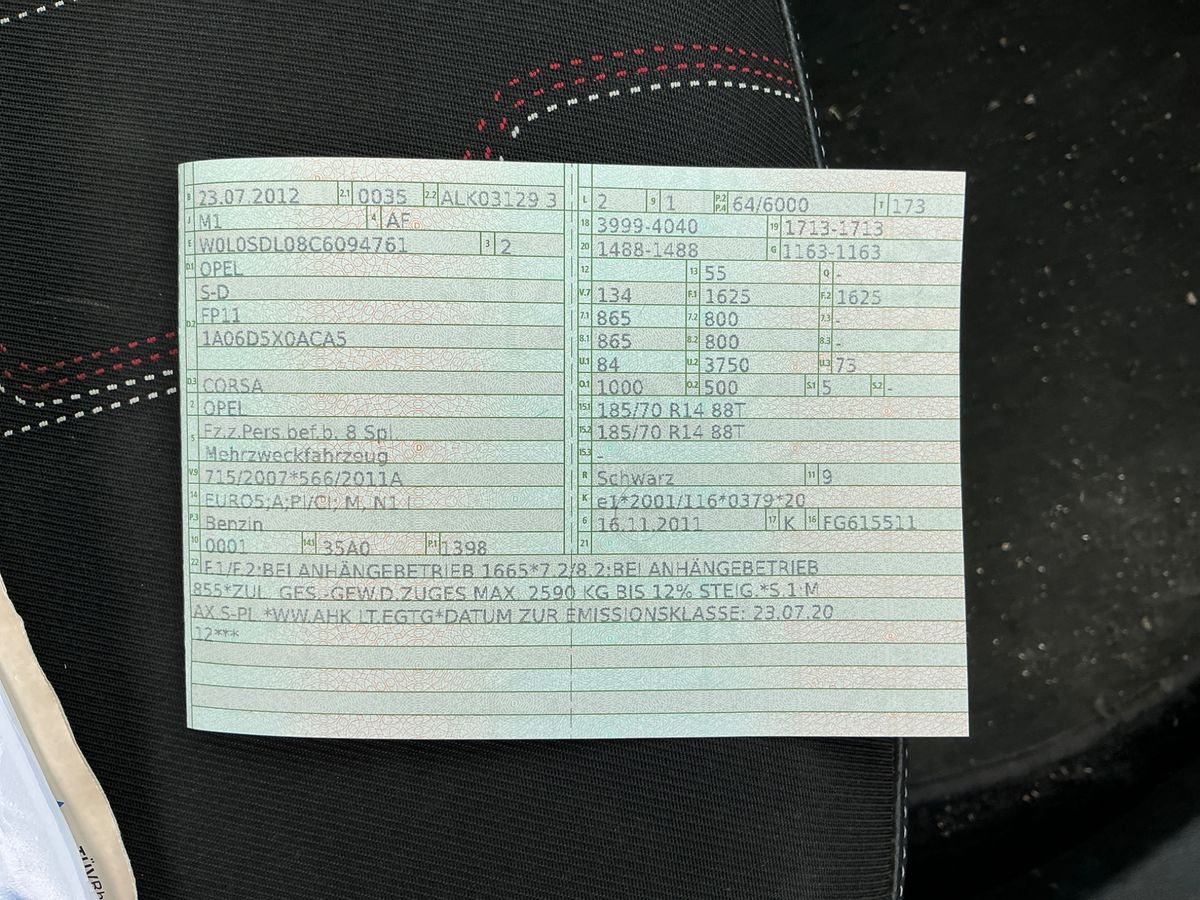 B 23.07.2012 2.1 0035 2.2 ALK03129 3
J M1 4 AF
E W0L0SDL08C6094761 3 2
D.1 OPEL
S-D
D.2 FP11
1A06D5X0ACA5
D.3 CORSA
2 OPEL
5 Fz.z.Pers.bef.b. 8 Spl
Mehrzweckfahrzeug
V.9 715/2007*566/2011A
14 EURO5;A;PI/CI; M, N1 I
P.3 Benzin
10 0001 14.1 35A0 P.1 1398
L 2 9 1 P.2 P.4 64/6000 T 173
18 3999-4040 19 1713-1713
20 1488-1488 G 1163-1163
12 13 55 Q -
V.7 134 F.1 1625 F.2 1625
7.1 865 7.2 800 7.3 -
8.1 865 8.2 800 8.3 -
U.1 84 U.2 3750 U.3 73
O.1 1000 O.2 500 S.1 5 S.2 -
15.1 185/70 R14 88T
15.2 185/70 R14 88T
15.3 -
R Schwarz 11 9
K e1*2001/116*0379*20
6 16.11.2011 17 K 16 FG615511
21
22 F.1/F.2:BEI ANHÄNGEBETRIEB 1665*7.2/8.2:BEI ANHÄNGEBETRIEB
855*ZUL. GES.-GEW.D.ZUGES MAX. 2590 KG BIS 12% STEIG.*S.1:M
AX.S-PL.*WW.AHK LT.EGTG*DATUM ZUR EMISSIONSKLASSE: 23.07.20
12***